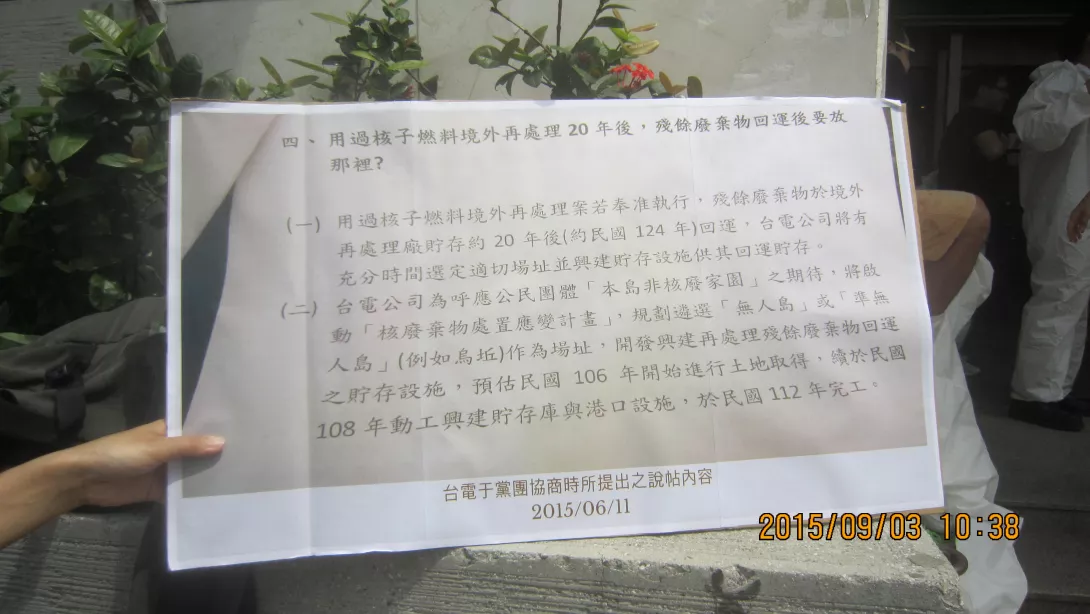 四、用過核子燃料境外再處理 20 年後，殘餘廢棄物回運後要放
那裡?
(一) 用過核子燃料境外再處理案若奉准執行，殘餘廢棄物於境外
再處理廠貯存約 20 年後(約民國 124 年)回運，台電公司將有
充分時間選定適切場址並興建貯存設施供其回運貯存。
(二) 台電公司為呼應公民團體「本島非核廢家園」之期待，將啟
動「核廢棄物處置應變計畫」，規劃遴選「無人島」或「準無
人島」(例如烏坵)作為場址，開發興建再處理殘餘廢棄物回運
之貯存設施，預估民國 106 年開始進行土地取得，續於民國
108 年動工興建貯存庫與港口設施，於民國 112 年完工。
台電于黨團協商時所提出之說帖內容
2015/06/11
2015/09/03 10:38